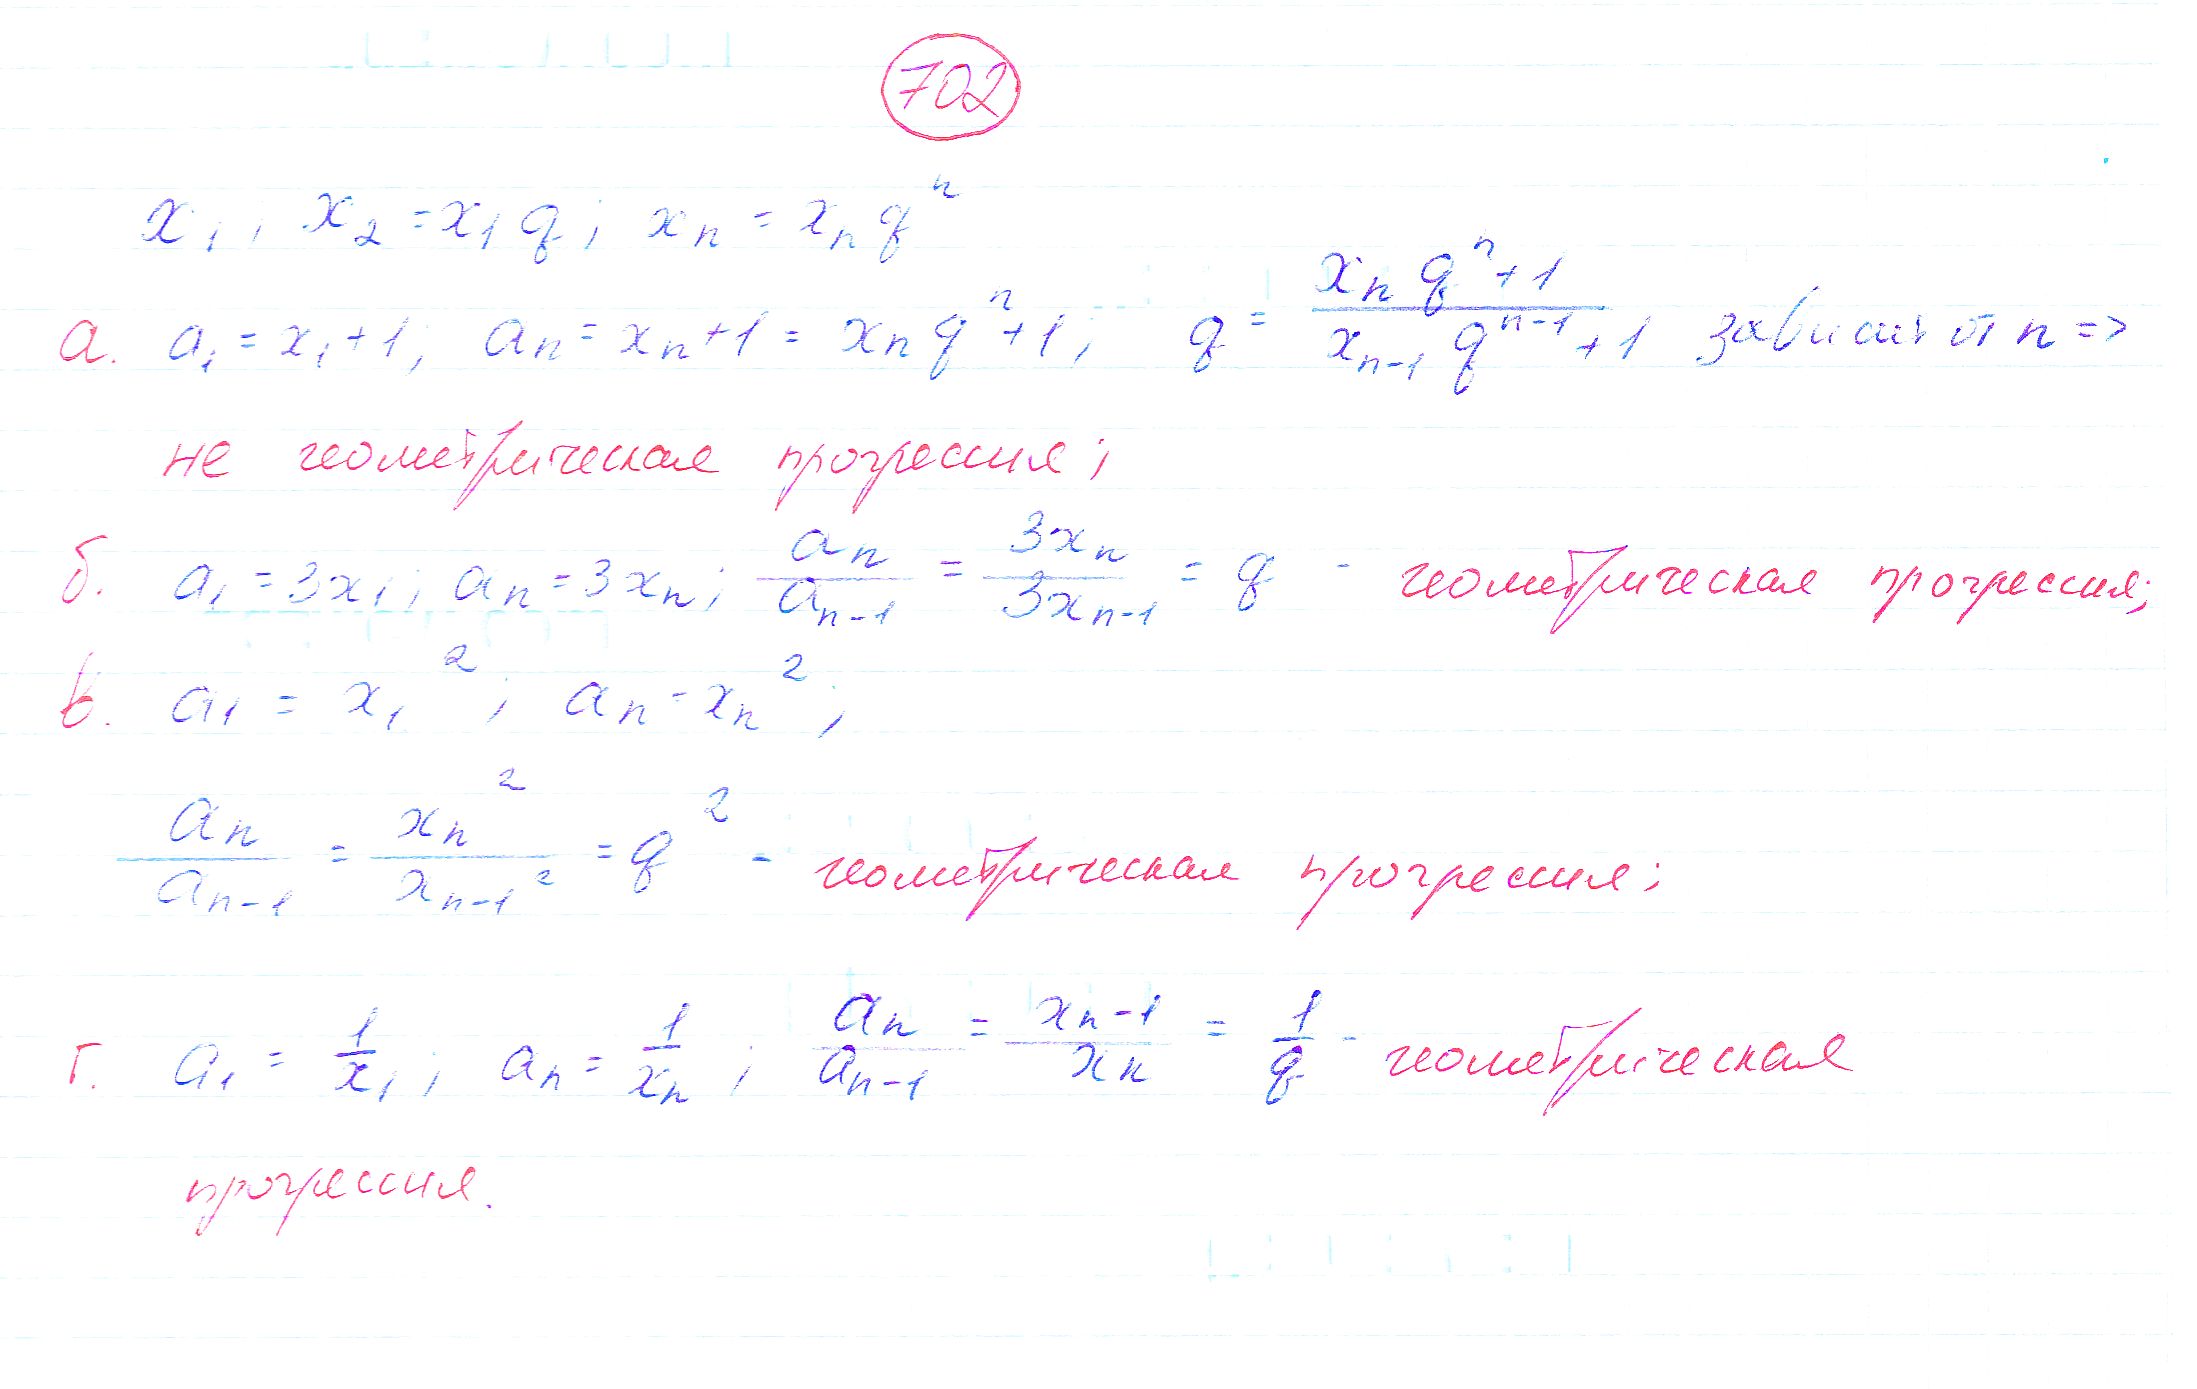 702
x₁; x₂ = x₁q; xₙ = xₙqⁿ
а. a₁ = x₁+1; aₙ = xₙ+1 = xₙqⁿ+1; q = (xₙqⁿ+1)/(xₙ₋₁qⁿ⁻¹+1) зависит от n =>
не геометрическая прогрессия;
б. a₁ = 3x₁; aₙ = 3xₙ; aₙ/aₙ₋₁ = 3xₙ/3xₙ₋₁ = q - геометрическая прогрессия;
в. a₁ = x₁²; aₙ = xₙ²;
aₙ/aₙ₋₁ = xₙ²/xₙ₋₁² = q² - геометрическая прогрессия;
г. a₁ = 1/x₁; aₙ = 1/xₙ; aₙ/aₙ₋₁ = xₙ₋₁/xₙ = 1/q - геометрическая
прогрессия.